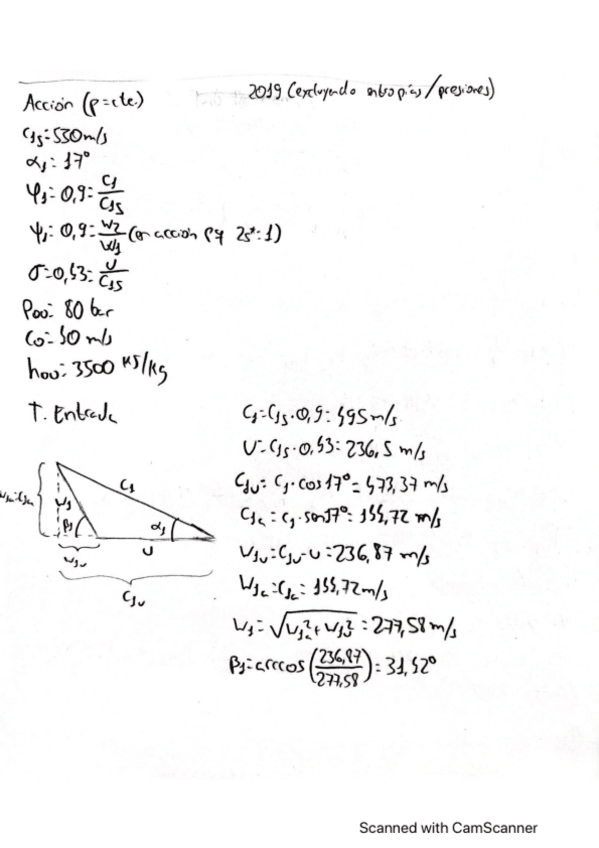 2019 (excluyendo entropías/presiones)
Acción (p=cte.)
C1s=550m/s
α1=17°
φ1=0,9=C1/C1s
ψ1=0,9=W2/W1 (en acción pq 2s*=1)
σ=0,43=U/C1s
P00=80 bar
C0=50 m/s
h00=3500 KJ/Kg
T. Entrada
C1=C1s·0,9=495m/s
U=C1s·0,43=236,5 m/s
C1u=C1·cos17°=473,37 m/s
C1a=C1·sen17°=144,72 m/s
W1u=C1u-u=236,87 m/s
W1a=C1a=144,72m/s
W1=√W1a²+W1u²=277,58m/s
β1=arccos(236,87/277,58)=31,42°
W1a=C1a
W1
C1
β1
α1
W1u
U
C1u
Scanned with CamScanner